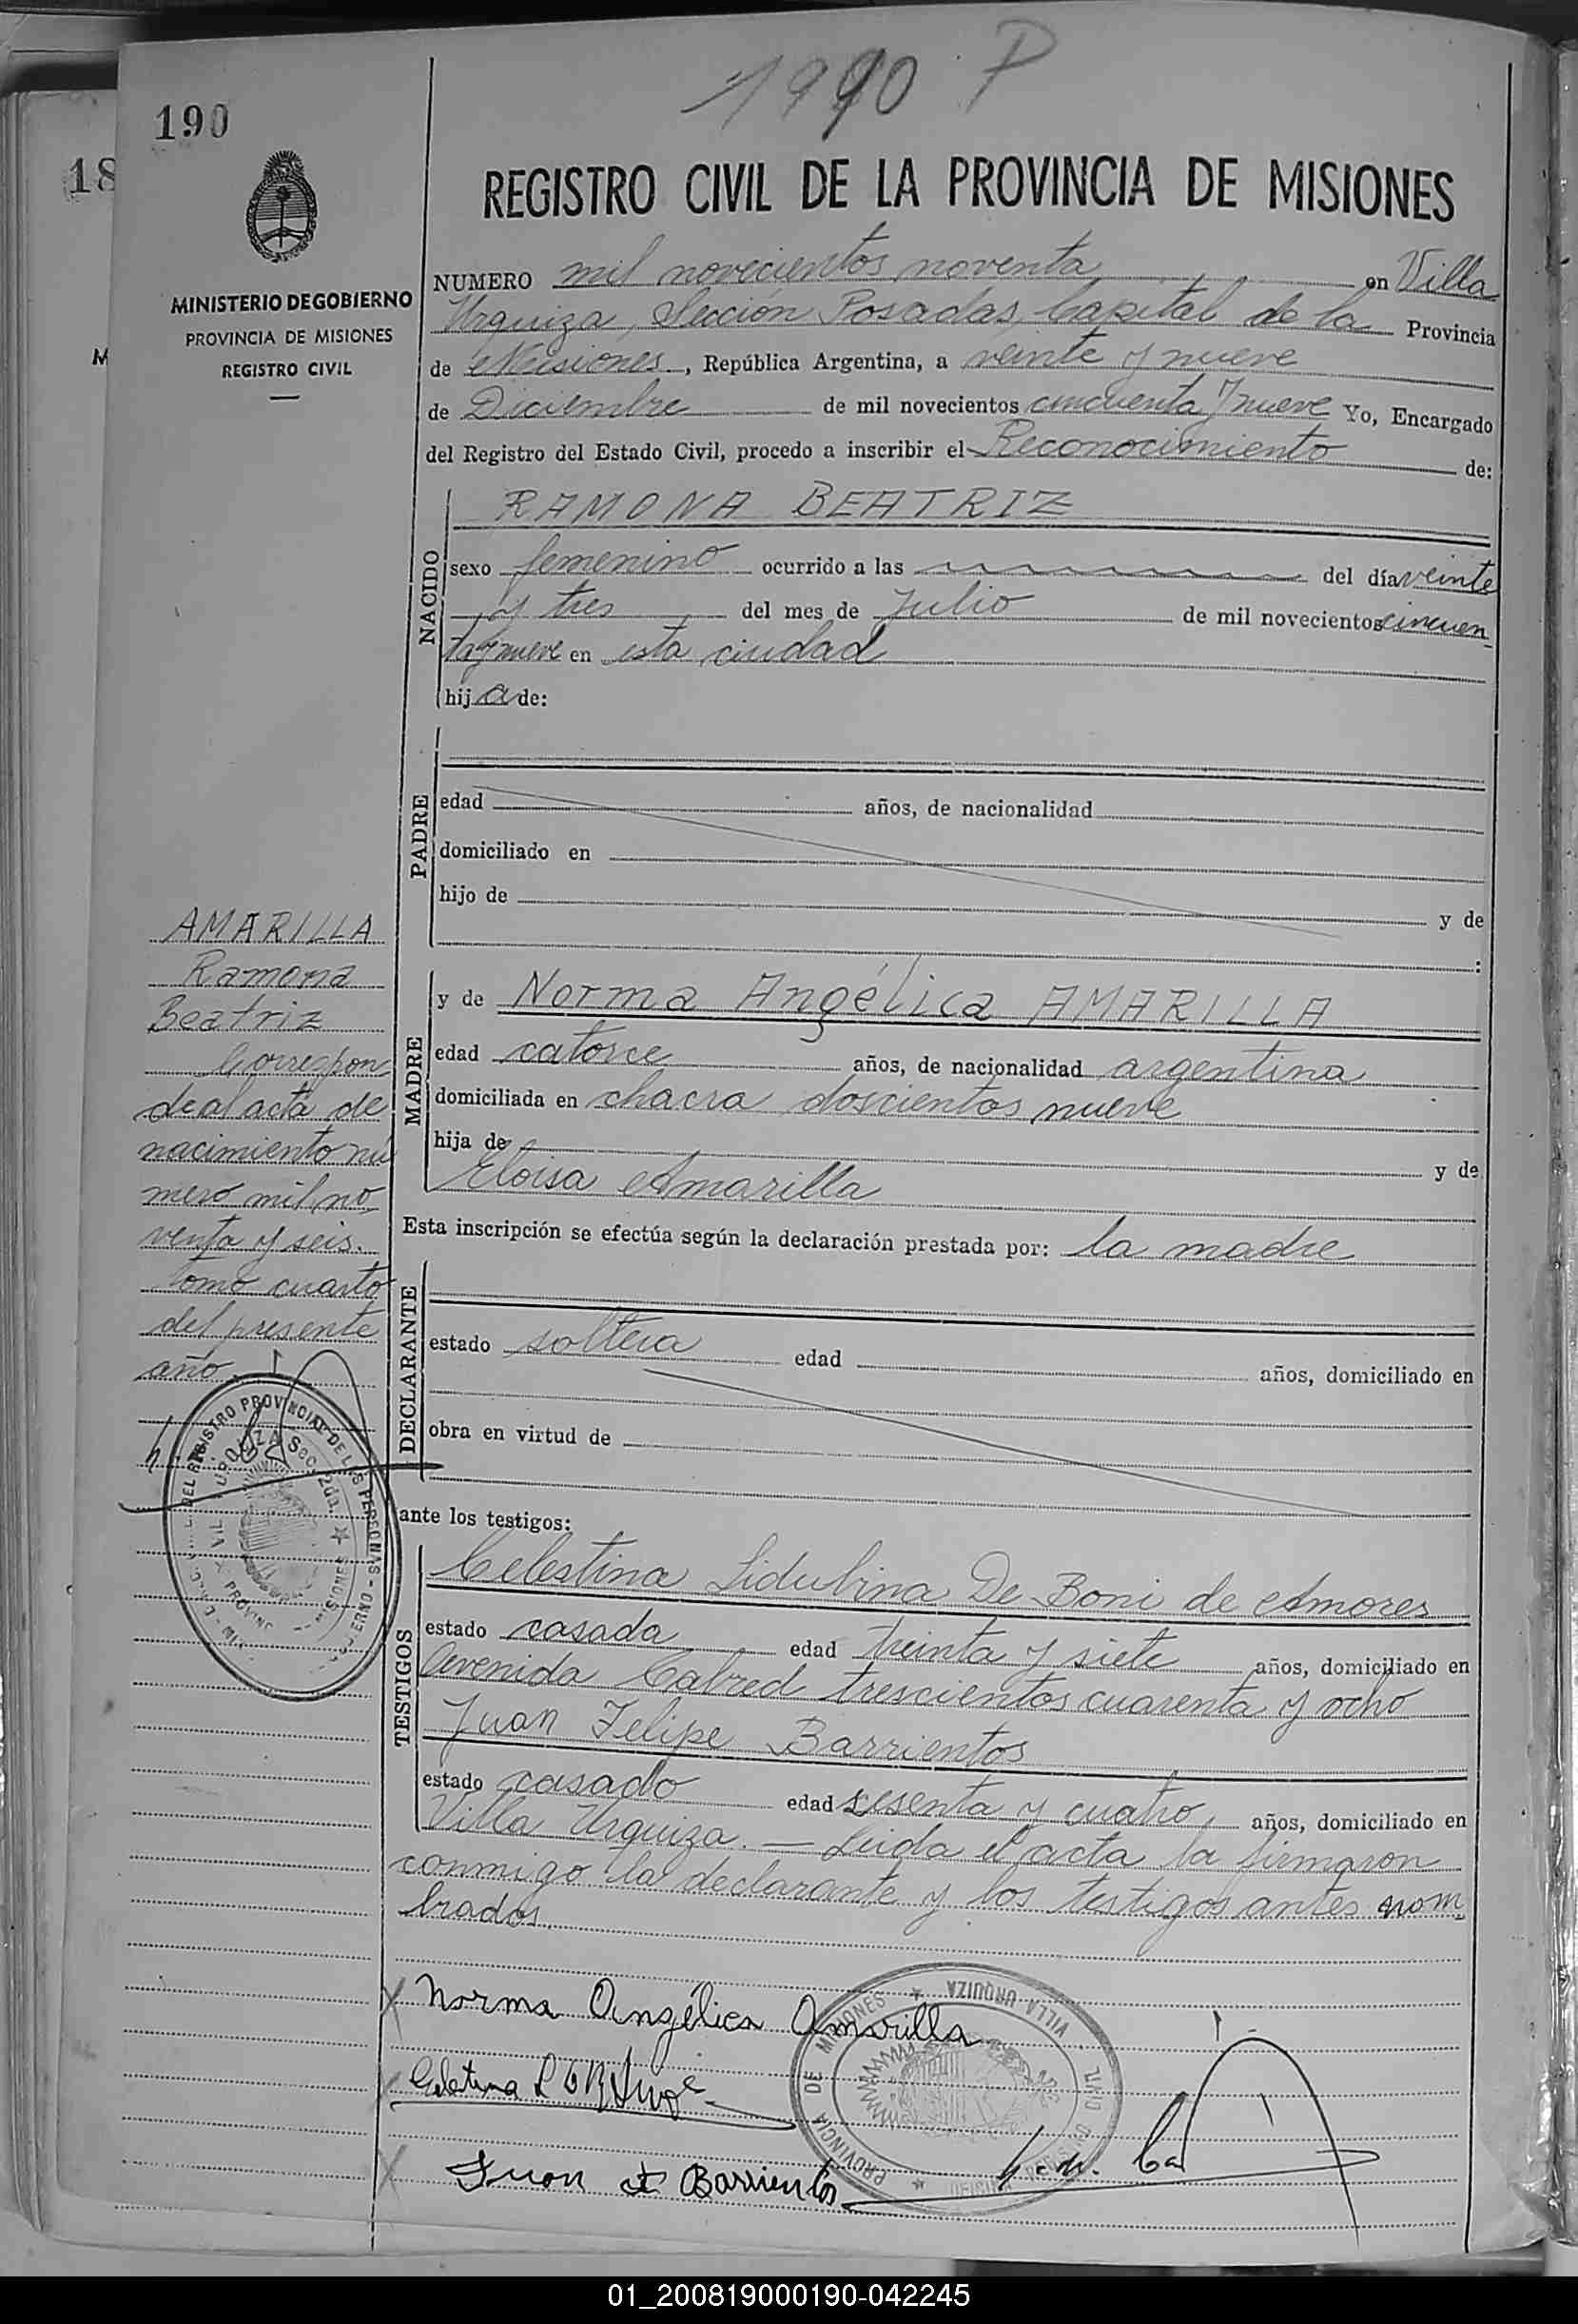 1990 P
190
18
REGISTRO CIVIL DE LA PROVINCIA DE MISIONES
MINISTERIO DE GOBIERNO
PROVINCIA DE MISIONES
REGISTRO CIVIL
M
NUMERO mil novecientos noventa en Villa
Urquiza, Sección Posadas, Capital de la Provincia
de Misiones, República Argentina, a veinte y nueve
de Diciembre de mil novecientos cincuenta y nueve Yo, Encargado
del Registro del Estado Civil, procedo a inscribir el Reconocimiento de:
NACIDO
RAMONA BEATRIZ
sexo femenino ocurrido a las del día veinte
y tres del mes de Julio de mil novecientos cincuen
ta y nueve en esta ciudad
hija de:
PADRE
edad años, de nacionalidad
domiciliado en
hijo de y de
:
AMARILLA
Ramona
Beatriz
Correspon
de al acta de
nacimiento nú
mero mil no
venta y seis.
tomo cuarto
del presente
año.
MADRE
y de Norma Angélica AMARILLA
edad catorce años, de nacionalidad argentina
domiciliada en chacra doscientos nueve
hija de y de
Eloisa Amarilla
Esta inscripción se efectúa según la declaración prestada por: la madre
DECLARANTE
estado soltera edad años, domiciliado en
obra en virtud de
ante los testigos:
TESTIGOS
Celestina Lidubina De Boni de Amores
estado casada edad treinta y siete años, domiciliado en
Avenida Cabred trescientos cuarenta y ocho
Juan Felipe Barrientos
estado casado edad sesenta y cuatro años, domiciliado en
Villa Urquiza. — Leida el acta la firmaron
conmigo la declarante y los testigos antes nom
brados.
Norma Angélica Amarilla
Juan F Barrientos
PROVINCIA DE MISIONES
VILLA URQUIZA
01_200819000190-042245